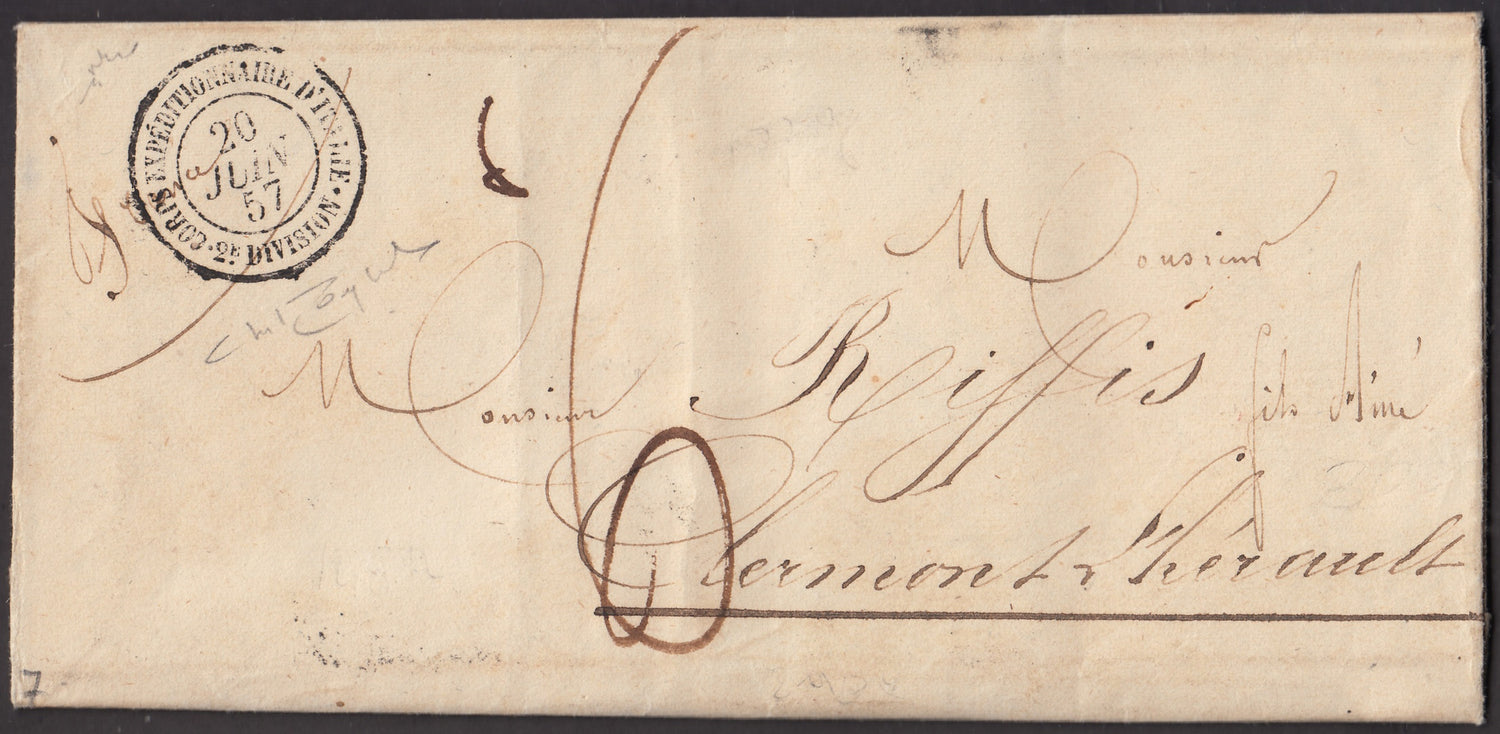 CORPS EXPÉDITIONNAIRE D'ITALIE · 2E DIVISION ·
20
JUIN
57
Monsieur
Monsieur
Riffis fils Ainé
Clermont L'hérault
7